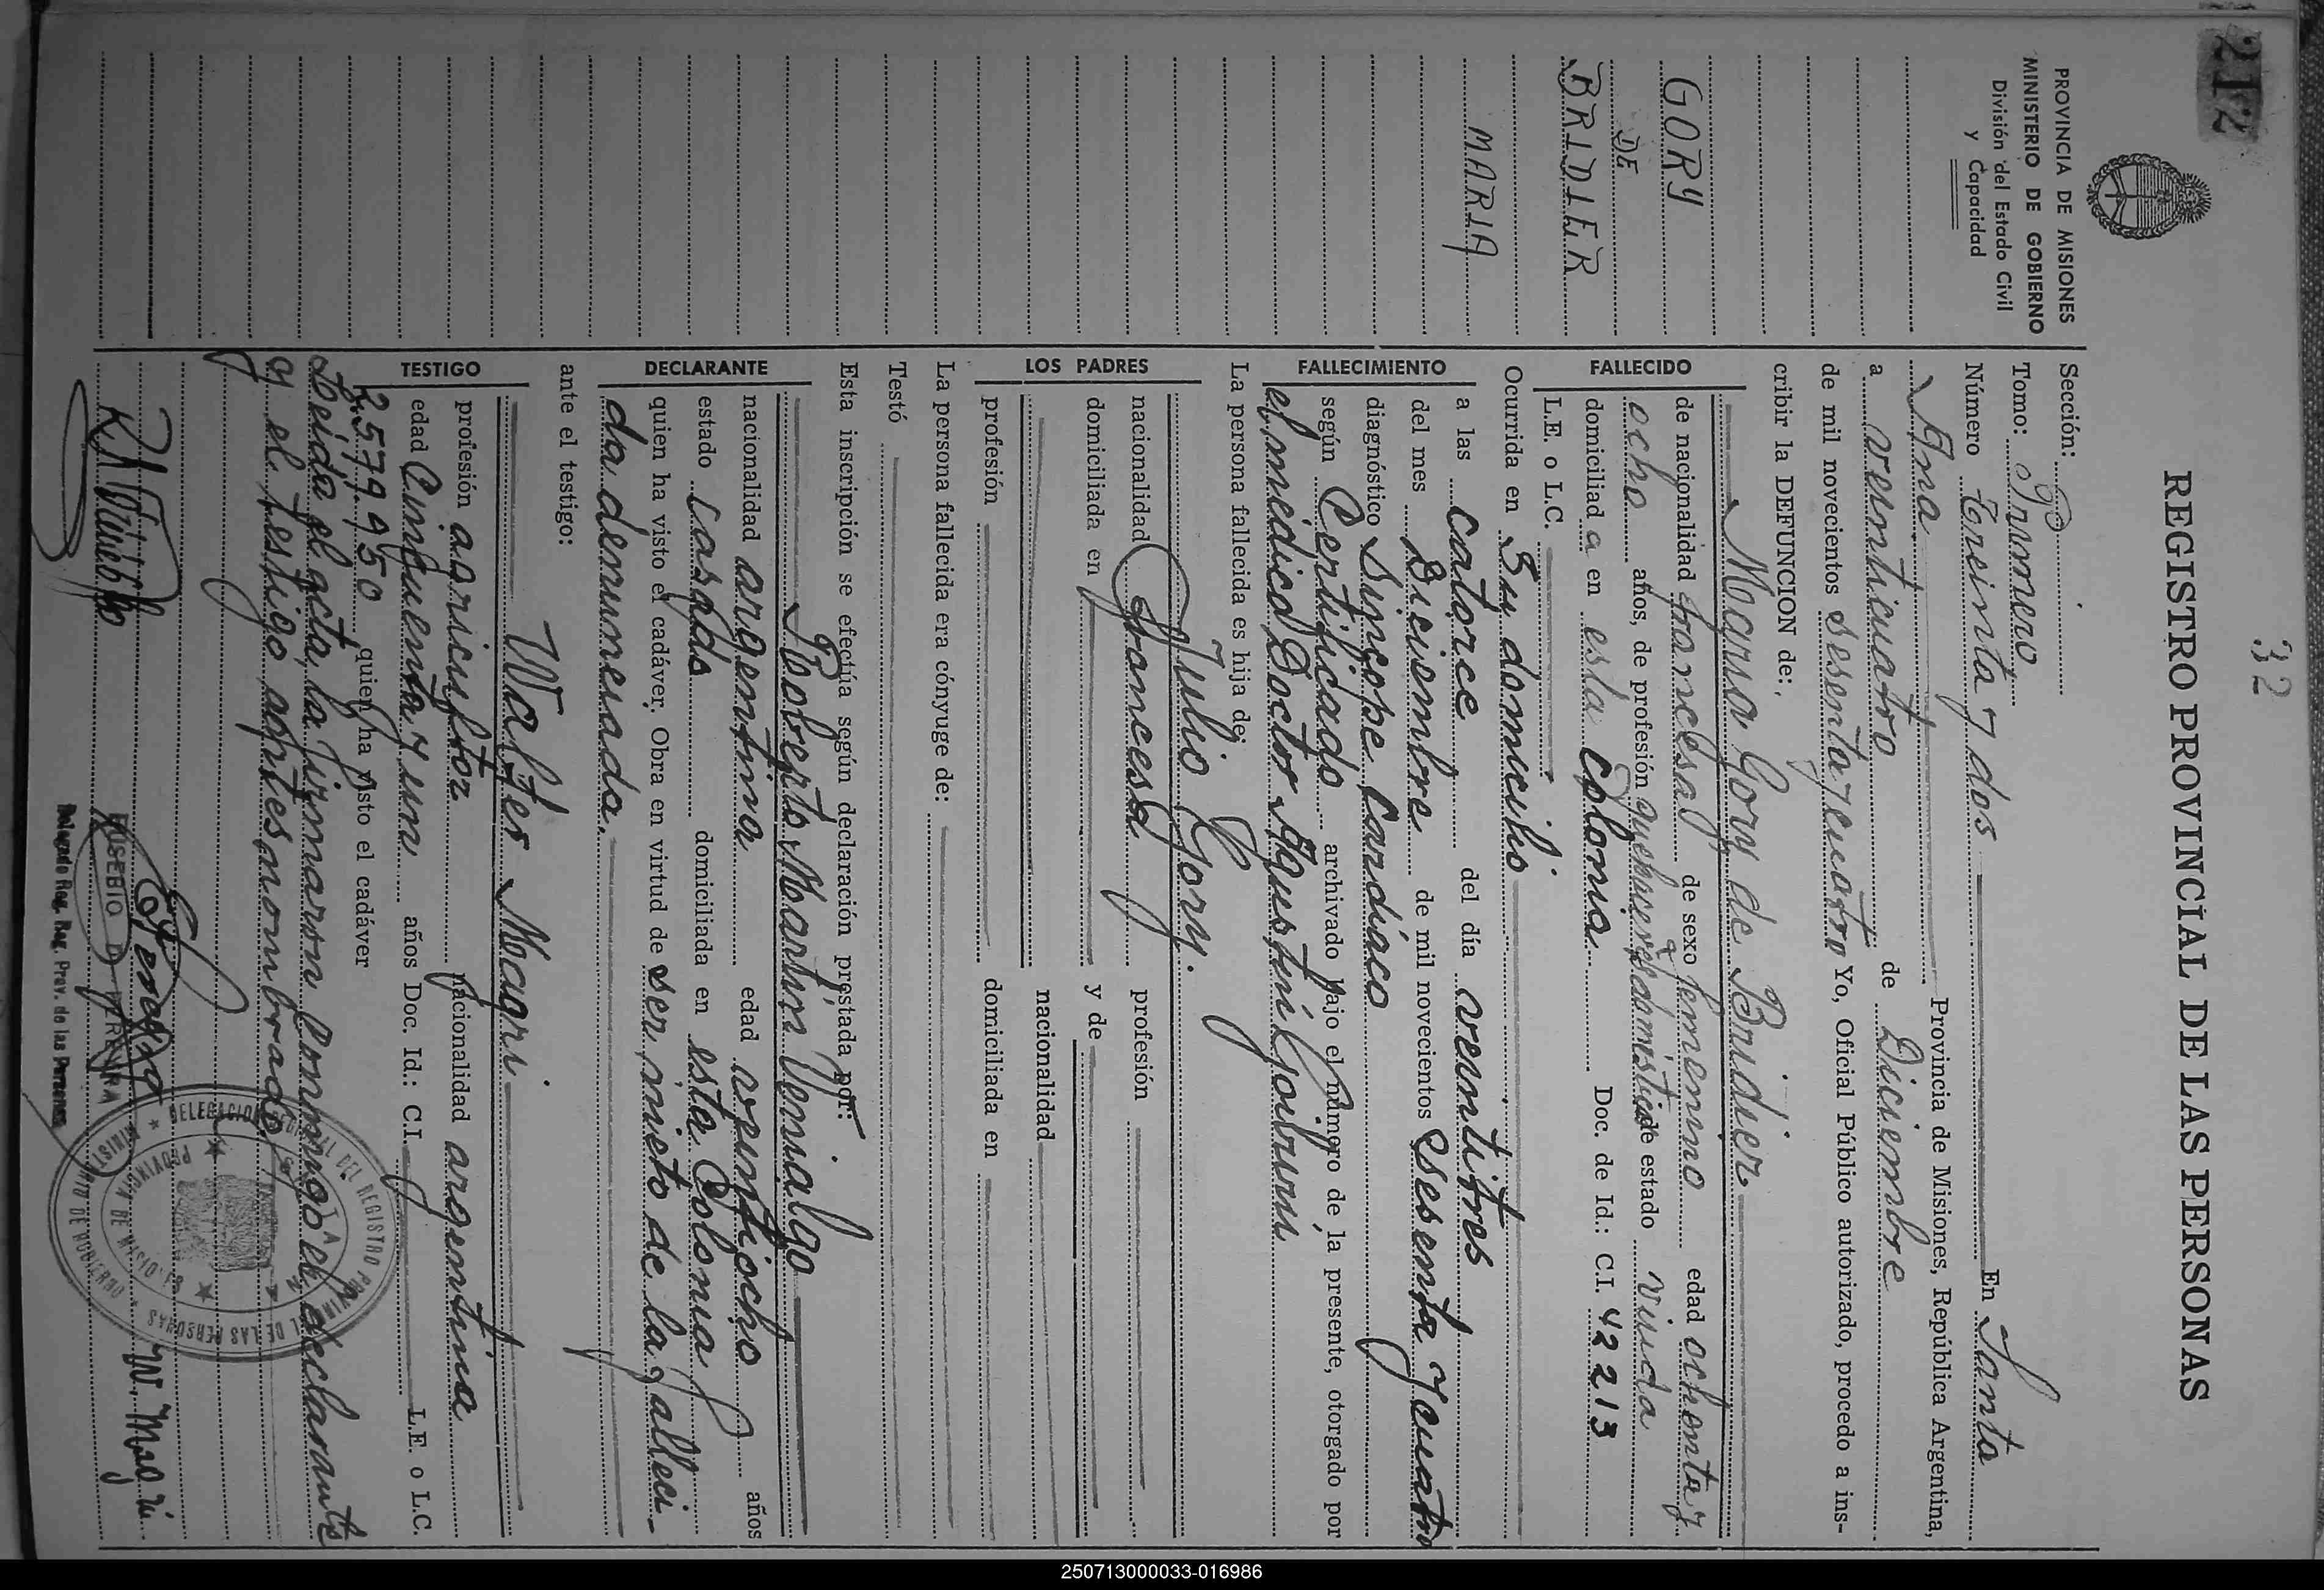 32
212
REGISTRO PROVINCIAL DE LAS PERSONAS
PROVINCIA DE MISIONES
MINISTERIO DE GOBIERNO
División del Estado Civil
y Capacidad
GORY
DE
BRIDIER
MARIA
Sección:
Tomo: Primero
Número Treinta y dos En Santa
Ana Provincia de Misiones, República Argentina,
a veinticuatro de Diciembre
de mil novecientos sesenta y cuatro Yo, Oficial Público autorizado, procedo a ins-
cribir la DEFUNCION de:
FALLECIDO
Maria Gory de Bridier
de nacionalidad francesa de sexo femenino edad ochenta y
ocho años, de profesión quehaceres domésticos de estado viuda
domiciliad a en esta colonia Doc. de Id.: C.I. 42213
L.E. o L.C.
Ocurrida en Su domicilio
FALLECIMIENTO
a las catorce del día veintitres
del mes Diciembre de mil novecientos sesenta y cuatro
diagnóstico Sincope Cardíaco
según Certificado archivado bajo el número de la presente, otorgado por
el médico Doctor Agustin Goiburu
La persona fallecida es hija de:
LOS PADRES
Julio Gory.
nacionalidad francesa profesión
domiciliada en y de
nacionalidad
profesión domiciliada en
La persona fallecida era cónyuge de:
Testó
Esta inscripción se efectúa según declaración prestada por:
DECLARANTE
Roberto Martin Venialgo
nacionalidad argentina edad veintiocho años
estado casado domiciliada en esta Colonia
quien ha visto el cadáver. Obra en virtud de ser nieto de la falleci-
da denunciada.
ante el testigo:
TESTIGO
Walter Magri
profesión agricultor nacionalidad argentina
edad Cincuenta y un años Doc. Id.: C.I. L.E. o L.C.
2.579.950 quien ha visto el cadáver
Leída el acta, la firmaron conmigo el declarante
y el testigo antes nombrado
W. Magri
EUSEBIO D. PEREYRA
Delegado Reg. Prov. de las Personas
DELEGACION DEL REGISTRO PROVINCIAL DE LAS PERSONAS
MINISTERIO DE GOBIERNO
PROVINCIA DE MISIONES
250713000033-016986